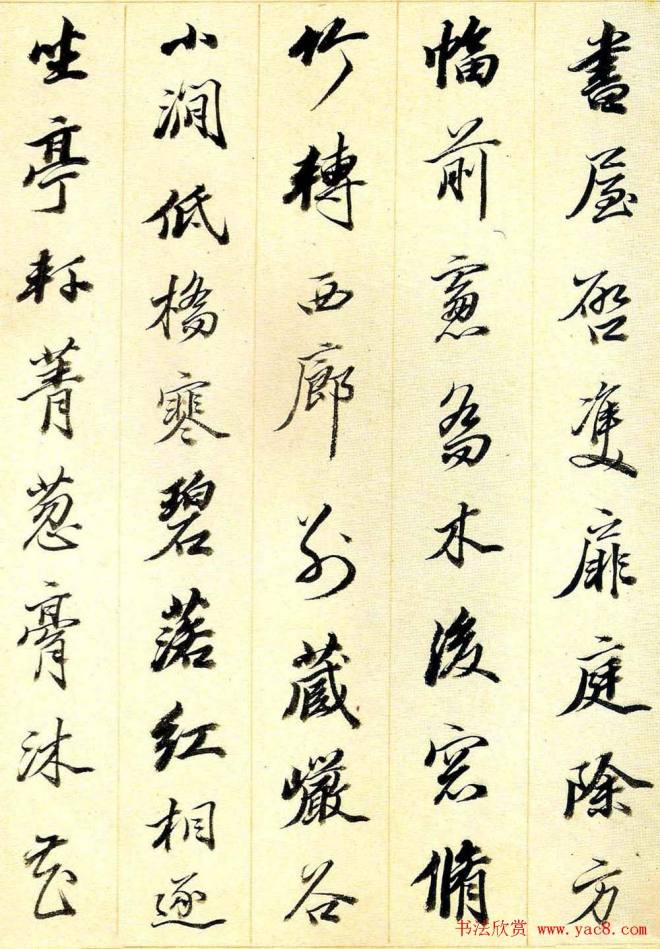 書屋啓雙扉庭除方
幅前窻喬木後窓脩
竹轉西廊別藏巖谷
小澗低橋寒碧落紅相逐
坐亭軒菁葱膏沐花
书法欣赏 www.yac8.com